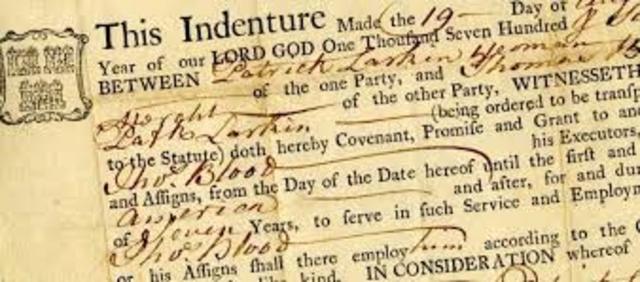 This Indenture Made the 19 Day of
Year of our LORD GOD One Thousand Seven Hundred
BETWEEN Patrick Larkin Yeoman
of the one Party, and Thomas
Wright of the other Party, WITNESSETH
Patk Larkin (being ordered to be transp
to the Statute) doth hereby Covenant, Promise and Grant to and
Thos. Blood his Executors,
and Assigns, from the Day of the Date hereof until the first and
and after, for and dur
of Seven Years, to serve in such Service and Employm
Thos. Blood
or his Assigns shall there employ him according to the C
like kind. IN CONSIDERATION whereof